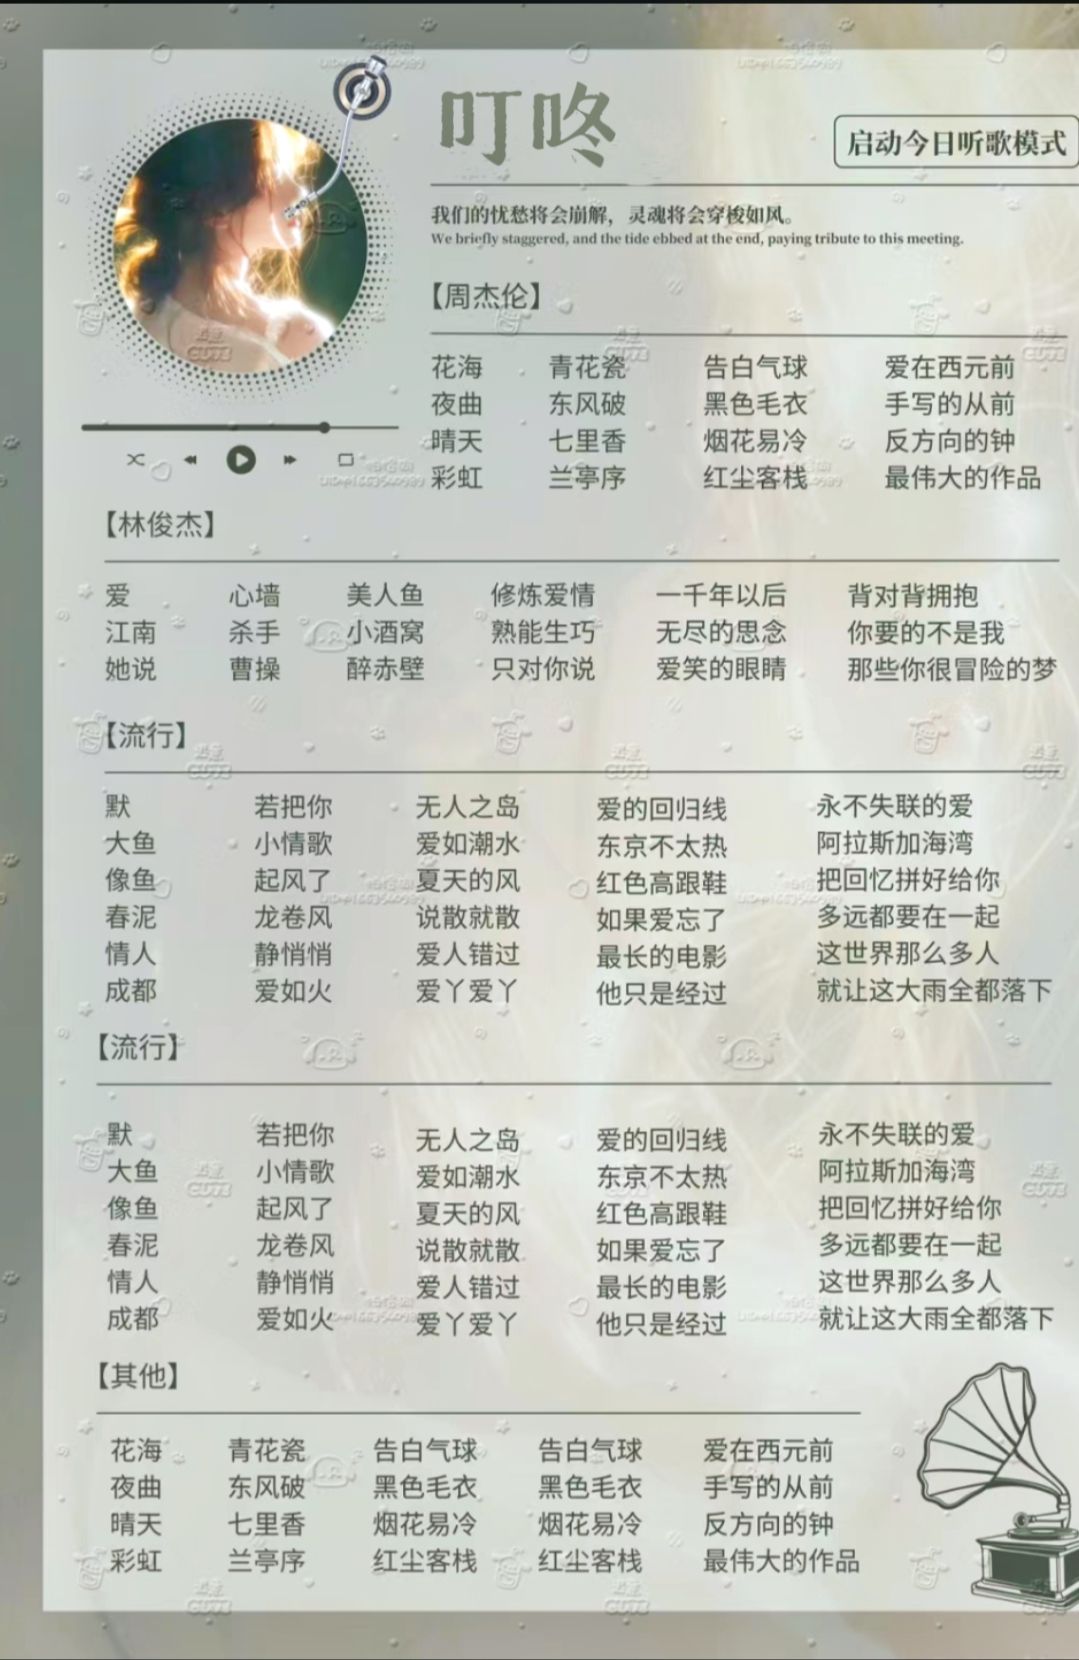 叮咚
启动今日听歌模式
我们的忧愁将会崩解，灵魂将会穿梭如风。
We briefly staggered, and the tide ebbed at the end, paying tribute to this meeting.
【周杰伦】
花海 青花瓷 告白气球 爱在西元前
夜曲 东风破 黑色毛衣 手写的从前
晴天 七里香 烟花易冷 反方向的钟
彩虹 兰亭序 红尘客栈 最伟大的作品
【林俊杰】
爱 心墙 美人鱼 修炼爱情 一千年以后 背对背拥抱
江南 杀手 小酒窝 熟能生巧 无尽的思念 你要的不是我
她说 曹操 醉赤壁 只对你说 爱笑的眼睛 那些你很冒险的梦
【流行】
默 若把你 无人之岛 爱的回归线 永不失联的爱
大鱼 小情歌 爱如潮水 东京不太热 阿拉斯加海湾
像鱼 起风了 夏天的风 红色高跟鞋 把回忆拼好给你
春泥 龙卷风 说散就散 如果爱忘了 多远都要在一起
情人 静悄悄 爱人错过 最长的电影 这世界那么多人
成都 爱如火 爱丫爱丫 他只是经过 就让这大雨全都落下
【流行】
默 若把你 无人之岛 爱的回归线 永不失联的爱
大鱼 小情歌 爱如潮水 东京不太热 阿拉斯加海湾
像鱼 起风了 夏天的风 红色高跟鞋 把回忆拼好给你
春泥 龙卷风 说散就散 如果爱忘了 多远都要在一起
情人 静悄悄 爱人错过 最长的电影 这世界那么多人
成都 爱如火 爱丫爱丫 他只是经过 就让这大雨全都落下
【其他】
花海 青花瓷 告白气球 告白气球 爱在西元前
夜曲 东风破 黑色毛衣 黑色毛衣 手写的从前
晴天 七里香 烟花易冷 烟花易冷 反方向的钟
彩虹 兰亭序 红尘客栈 红尘客栈 最伟大的作品